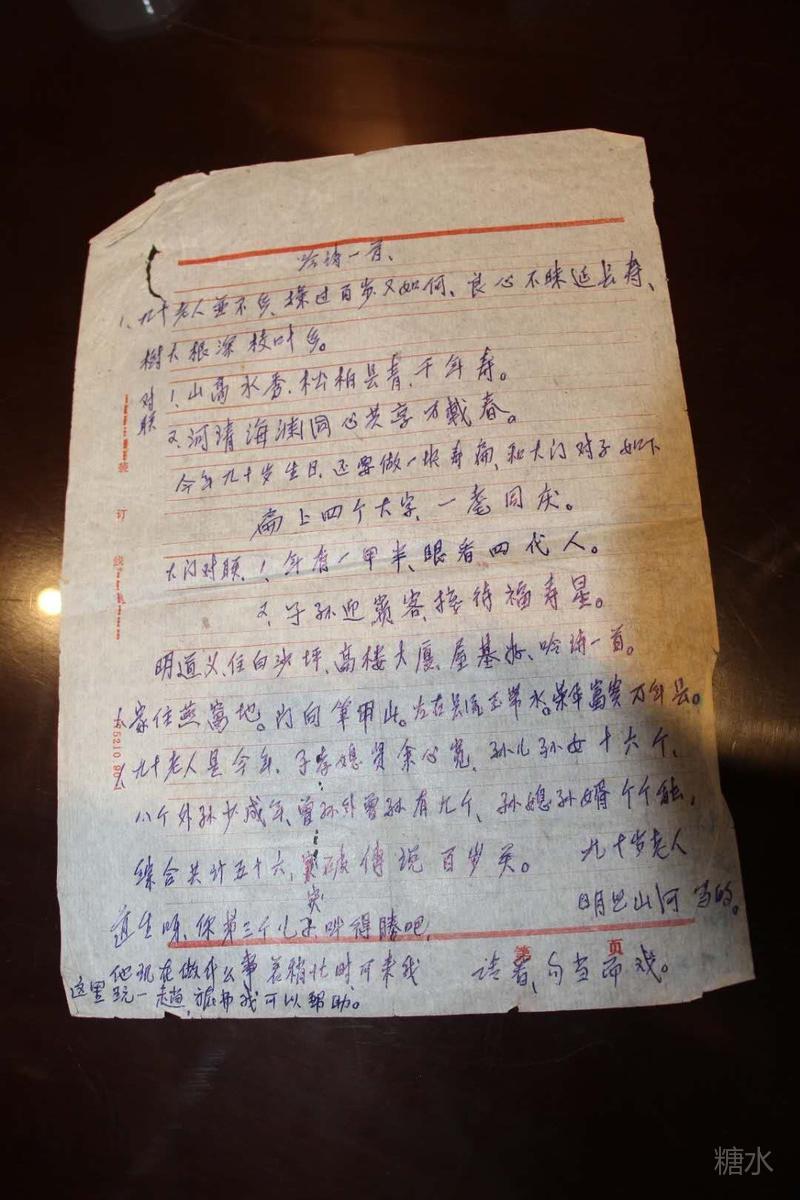 吟诗一首、
1、九十老人並不多、操过百岁又如何、良心不昧延长寿、
樹大根深枝叶多。
对联
1、山高水秀、松柏县青、千年寿。
2、河清海渊同心共享万戴春。
今年九十岁生日、还要做一块寿匾、和大门对子如下
扁上四个大字、一耄同庆。
大门对联、1、年有一甲半、眼看四代人。
2、子孙迎宾客、接待福寿星。
明道义、住白沙坪、高楼大厦、屋基好、吟诗一首。
家住燕窩地。门向筆用山。左右是流玉带水。荣华富贵万年县。
九十老人是今年、子孝媳贤余心宽、孙儿孙女十六个、
八个外孙少成年、曾孙外曾孙有九个、孙媳孙婿个个能、
综合共计五十六、突破傳说百岁关。
九十岁老人
突
明山河 写的。
道生呀、你第三个儿子叫得勝吧、
他现在做什么事 若稍忙时可来我
这里玩一趟、我可以帮助。
请看、勾当而戏。
第 页
装
订
线
糖水